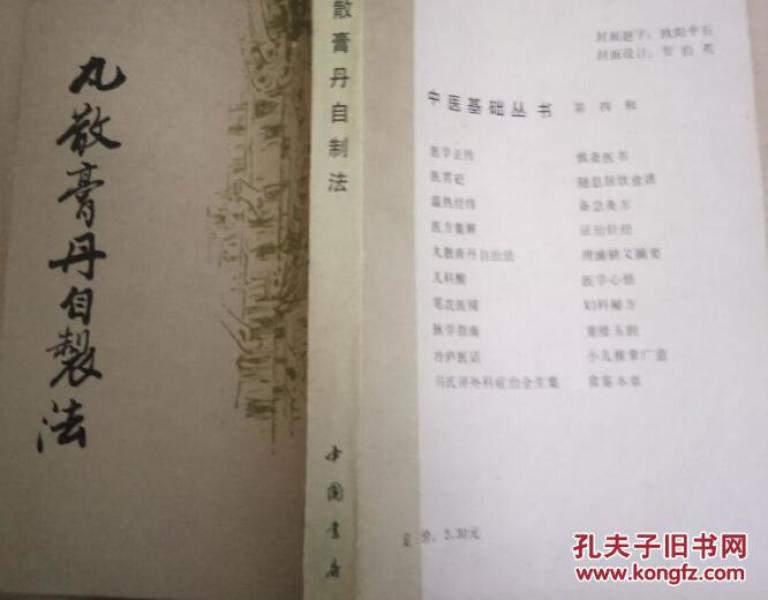 丸散膏丹自製法
散膏丹自制法
中国书店
封面题字：欧阳中石
封面设计：
中医基础丛书 第四辑
医学正传
医贯砭
随息居饮食谱
温热经纬
备急灸方
医方集解
证治针经
丸散膏丹自治法
理瀹骈文摘要
儿科醒
医学心悟
笔花医镜
妇科秘方
脉学指南
重楼玉钥
冷庐医话
小儿推拿广意
马氏评外科症治全生集
食鉴本草
定 价：2.30元
孔夫子旧书网
www.kongfz.com